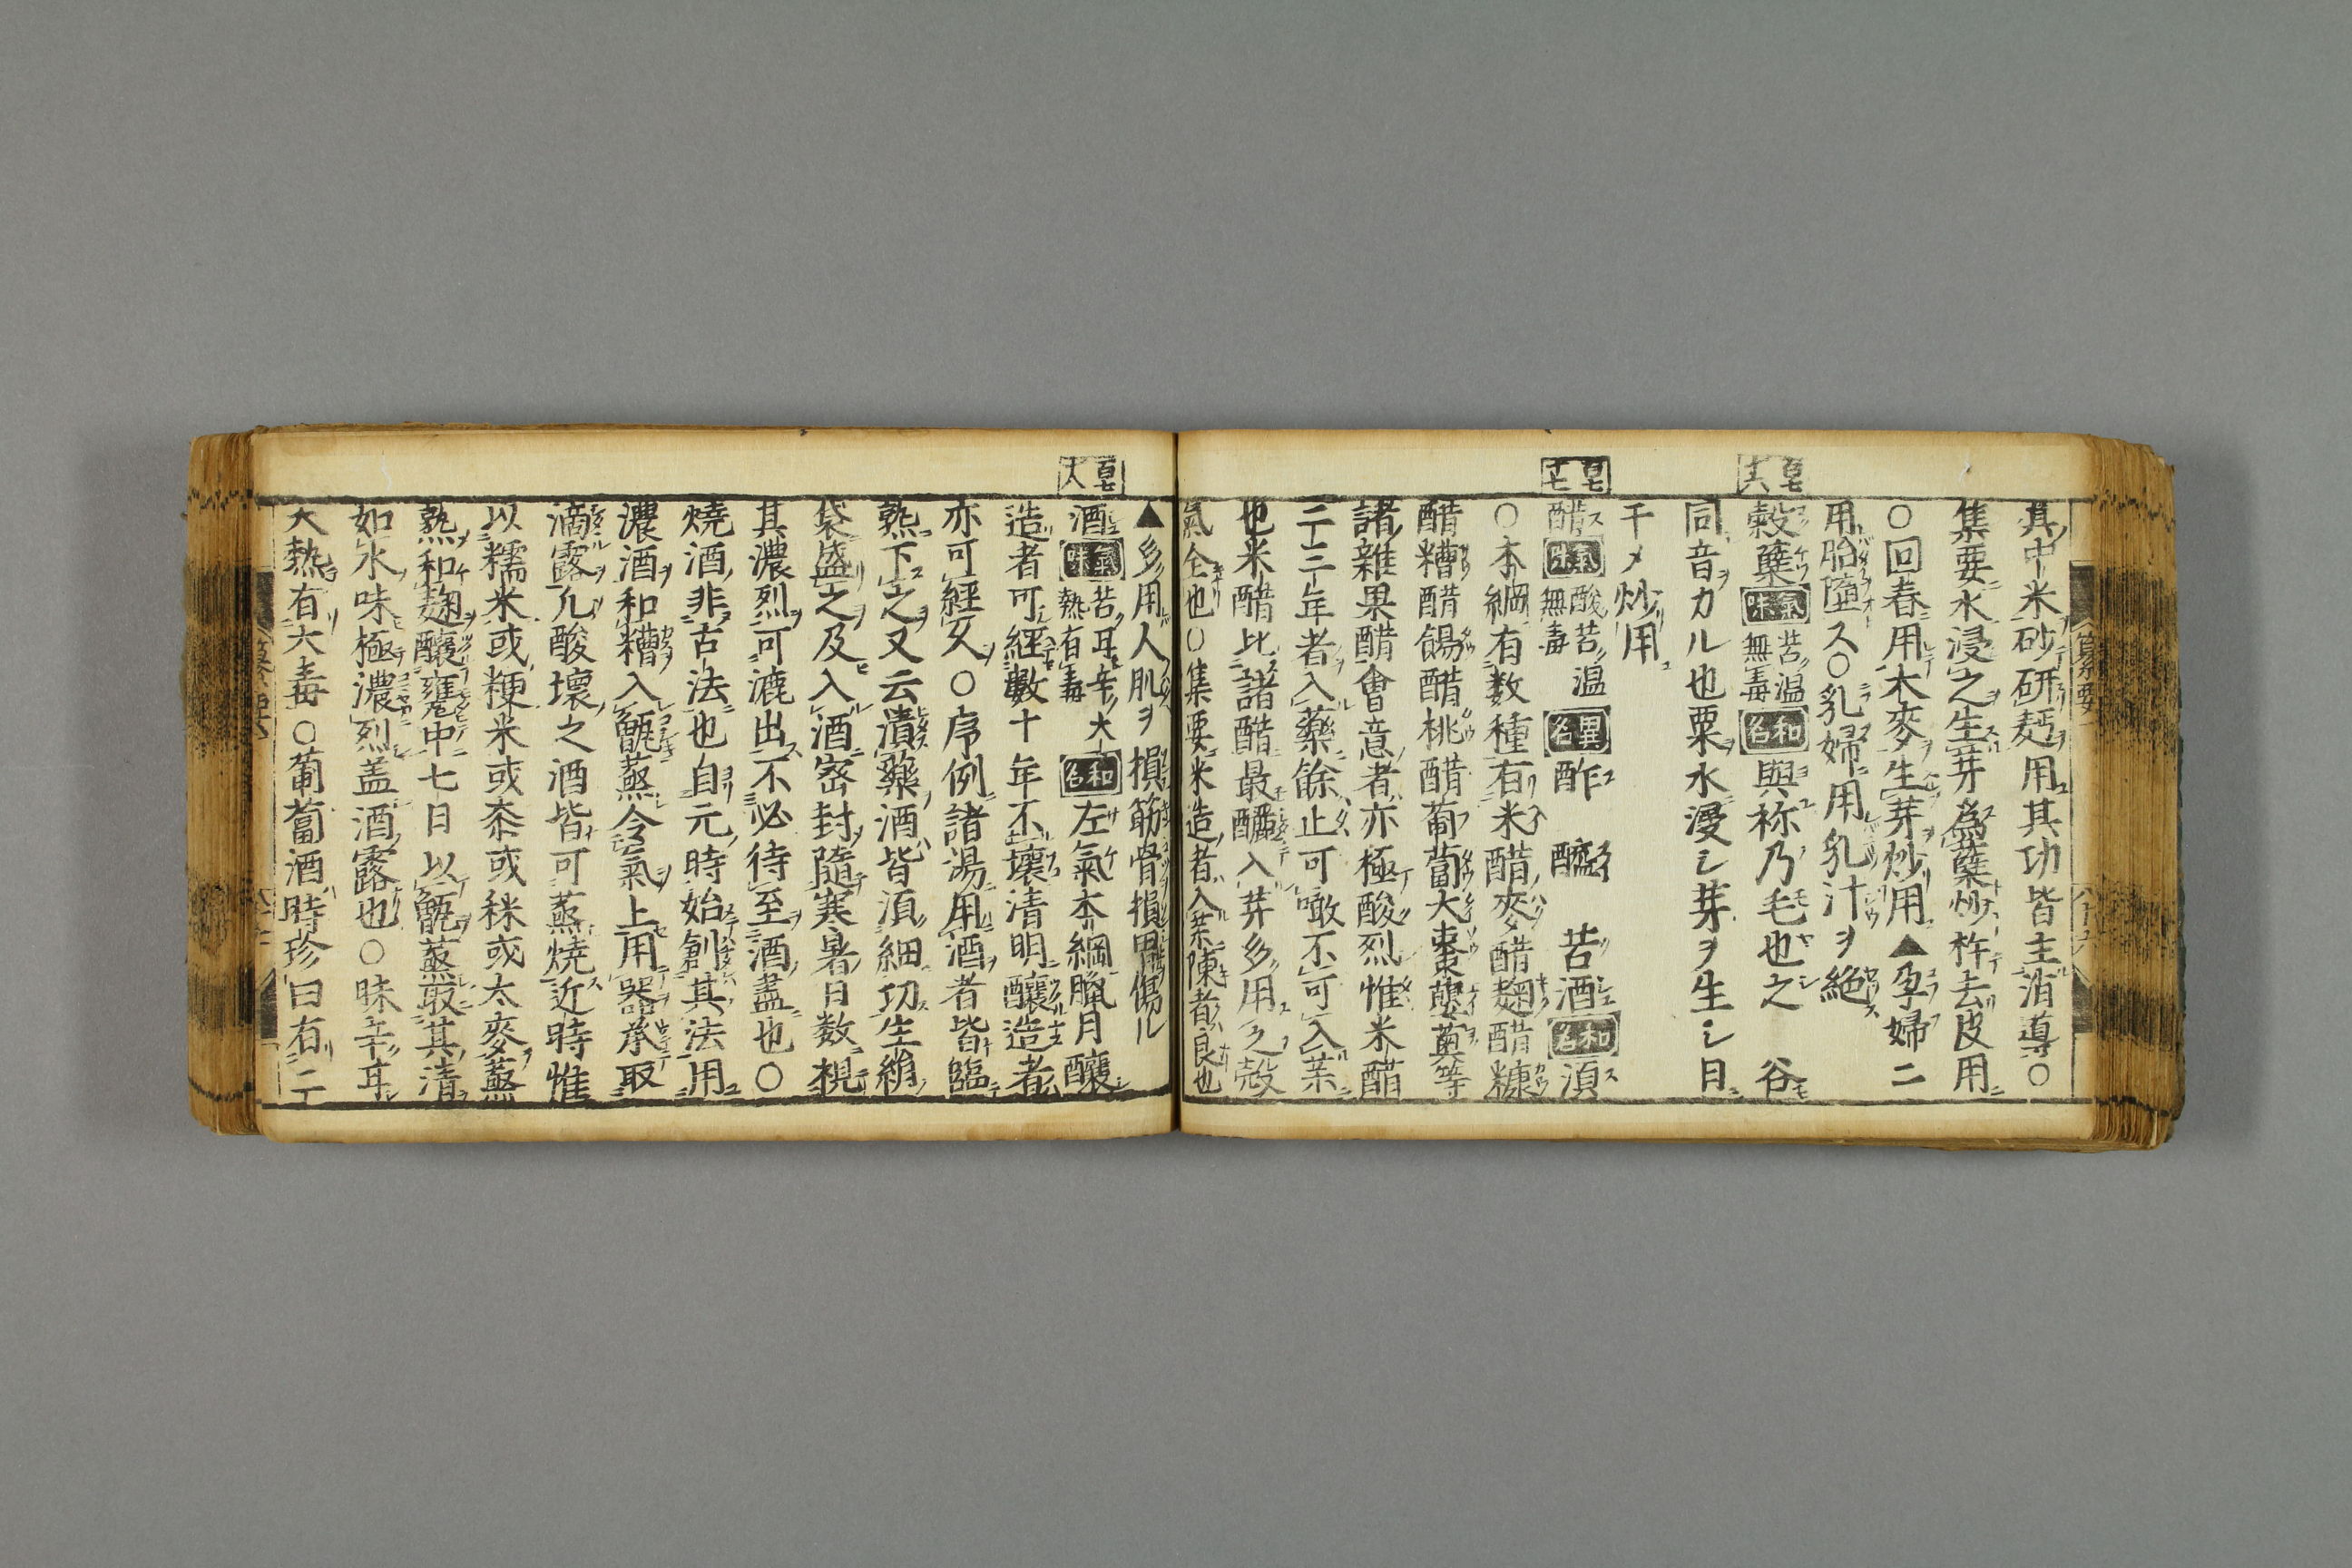 其中米砂研麪用其功皆主消導○
集要水浸之生芽爲蘗炒杵去皮用
○回春用大麥生芽炒用▲孕婦ニ
用胎墮ス○乳婦ニ用乳汁ヲ絶
穀蘗 氣味 苦温無毒 和名 與祢乃毛也之 谷
同音カル也粟水漫シ芽ヲ生シ日
干メ炒用
醋 氣味 酸苦温無毒 異名 酢 醯 苦酒 和名 湏
○本綱有数種有米醋麥醋麹醋糠
醋糟醋餳醋桃醋葡萄大棗蘡薁等
諸雜果醋會意者亦極酸烈惟米醋
二三年者入藥餘止可噉不可入薬
也米醋比諸醋最釅入薬多用之殻
氣全也○集要米造者入薬陳者良也
▲多用人肌ヲ損筋骨損胃傷ル
酒 氣味 苦甘辛大熱有毒 和名 左氣本綱臘月釀
造者可經數十年不壞清明釀造者
亦可經久○序例諸湯用酒者皆臨
熟下之又云漬藥酒皆湏細切生絹
袋盛之及入酒宻封隨寒暑日数視
其濃烈可漉出不必待至酒盡也○
燒酒非古法也自元時始創其法用
濃酒和糟入甑蒸令氣上用器承取
滴露凢酸壞之酒皆可蒸燒近時惟
以糯米或粳米或黍或秫或大麥蒸
熟和麹釀甕中七日以甑蒸取其清
如水味極濃烈盖酒露也○味辛甘
大熱有大毒○葡萄酒時珍曰有二